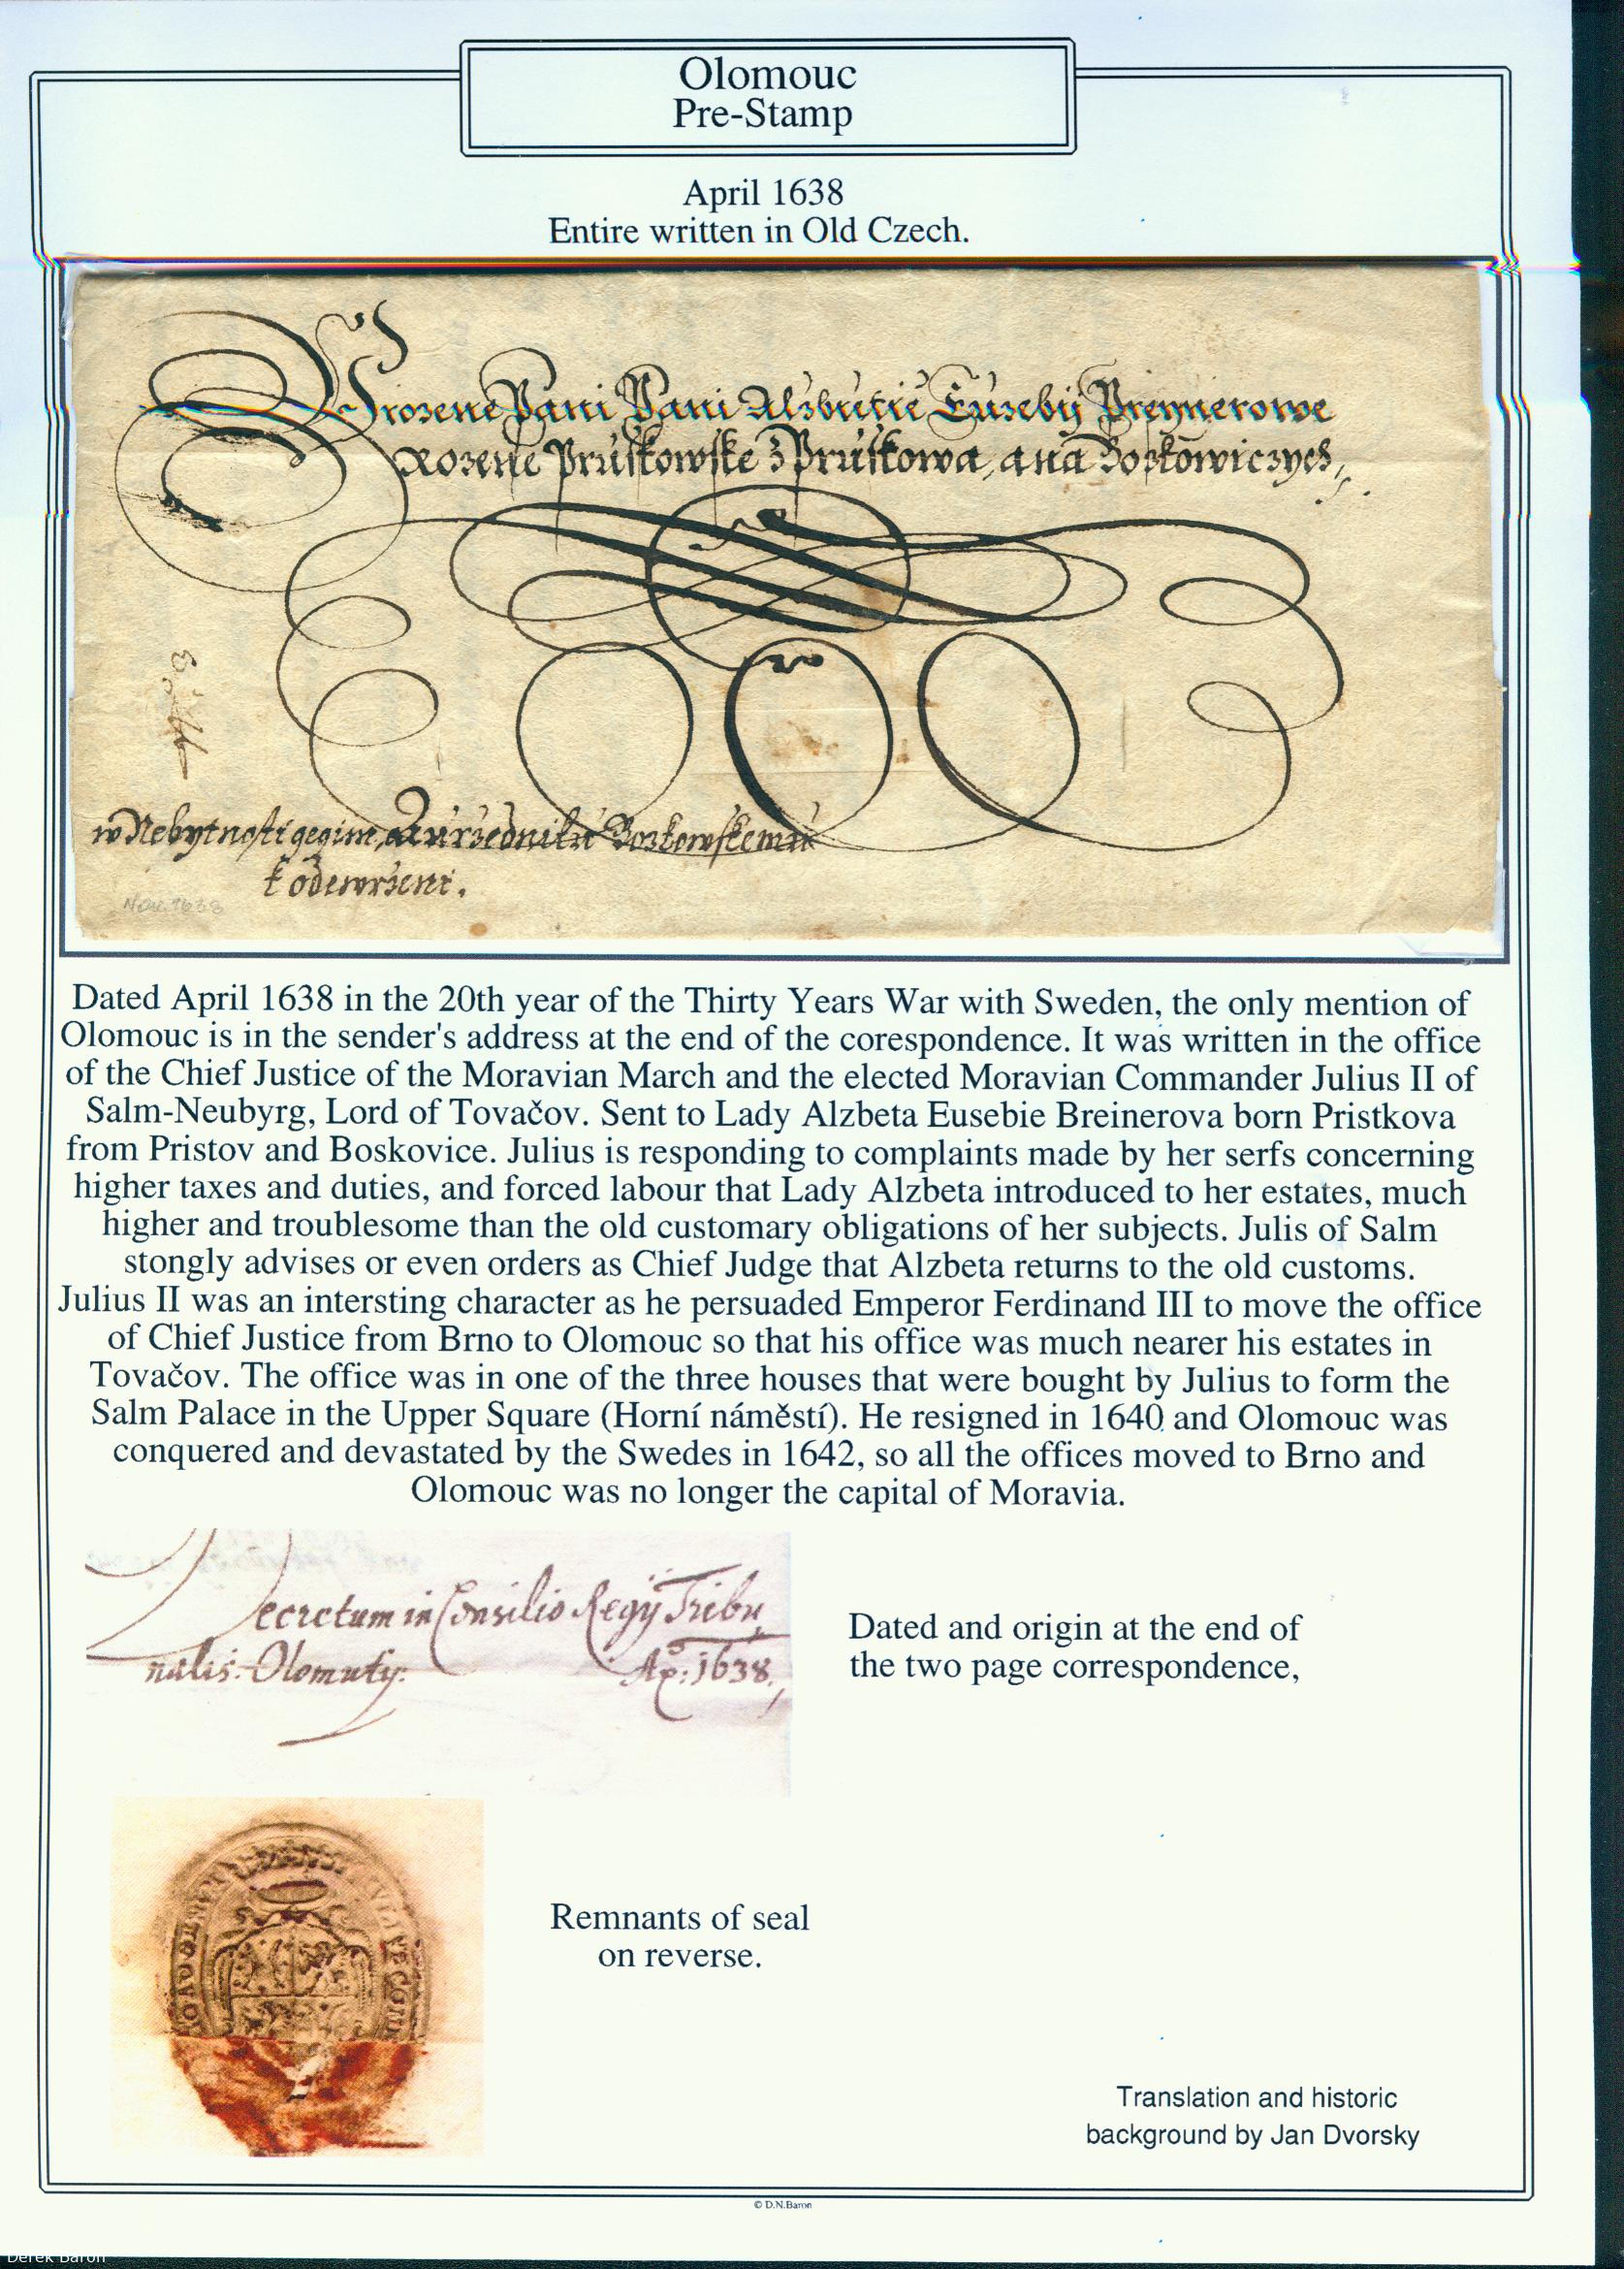 Olomouc
Pre-Stamp
April 1638
Entire written in Old Czech.
Urozene Pani Pani Alzbietie Euzebij Preynerowe
Rozene Pruskowske z Pruskowa, a na Boskowiczych,
w Nebytnosti gegim, Aurzedniku Boskowskemu
k odewrzeni.
Nov. 1638
Dated April 1638 in the 20th year of the Thirty Years War with Sweden, the only mention of
Olomouc is in the sender's address at the end of the corespondence. It was written in the office
of the Chief Justice of the Moravian March and the elected Moravian Commander Julius II of
Salm-Neubyrg, Lord of Tovačov. Sent to Lady Alzbeta Eusebie Breinerova born Pristkova
from Pristov and Boskovice. Julius is responding to complaints made by her serfs concerning
higher taxes and duties, and forced labour that Lady Alzbeta introduced to her estates, much
higher and troublesome than the old customary obligations of her subjects. Julis of Salm
stongly advises or even orders as Chief Judge that Alzbeta returns to the old customs.
Julius II was an intersting character as he persuaded Emperor Ferdinand III to move the office
of Chief Justice from Brno to Olomouc so that his office was much nearer his estates in
Tovačov. The office was in one of the three houses that were bought by Julius to form the
Salm Palace in the Upper Square (Horní náměstí). He resigned in 1640 and Olomouc was
conquered and devastated by the Swedes in 1642, so all the offices moved to Brno and
Olomouc was no longer the capital of Moravia.
Decretum in Consilio Regij Tribu
nalis. Olomutij: Ap: 1638.
Dated and origin at the end of
the two page correspondence,
Remnants of seal
on reverse.
Translation and historic
background by Jan Dvorsky
© D.N.Baron
Derek Baron